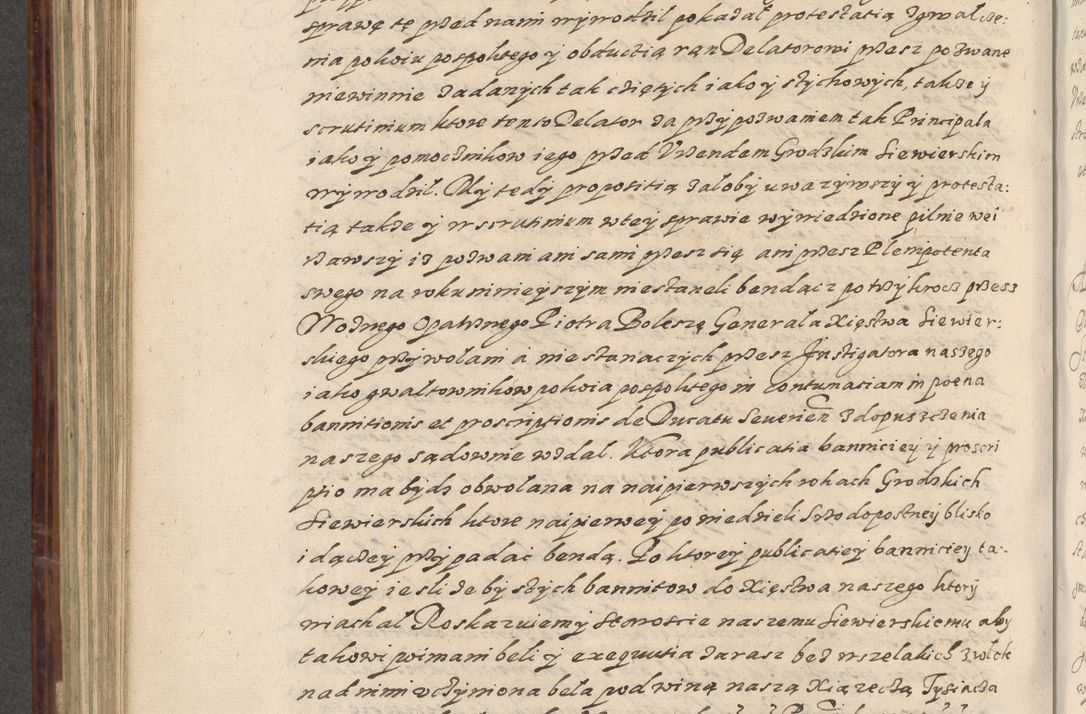 sprawę tę przed nami wywodził pokazał protestatią zgwałcze:
nia pokoiu pospolitego y obductią ran Delatorowi przesz pozwane
niewinnie zadanych tak ciętych iako y stychowych, także y
scrutinium ktore tento Delator za przypozwaniem tak Principala
iako y pomocznikow iego przed Vrzendem Grodzkim Siewierskim
wywodził. My tedy propositią załoby uwazywszy y protesta:
tią także y w scrutinium w tey sprawie wywiedzione pilnie wei
rzawszy iz pozwani ani sami przesz się ani przesz Plenipotenta
swego na roku ninieyszym nie staneli bendącz po trzykrocz przesz
Woznego Opatrznego Piotra Boleszę Generala Xięstwa Siewier:
skiego przywołani a nie stanaczych przesz Instigatora naszego
iako gwałtownikow pokoia pospolitego in contumaciam in poena
bannitionis et proscriptionis de Ducatu Severien zdopuszczenia
naszego sądownie wzdał. Ktora publicatia banniciey y proscri
ptio ma bydz obwołana na naipierwszych rokach Grodzkich
Siewierskich ktore naipierwey po niedzieli Srzodopostney blisko
idączey przypadać bendą. Po ktorey publicatiey banniciey ta-
kowey iesli żeby stych bannitow do Xięstwa naszego ktory
wiachał Roskazuiemy Staroscie naszemu Siewierskiemu aby
takowi poimani beli y exequutia zaraz bez wszelakich zwłok
nad nimi vczyniona beła pod winą naszą Xiązęcą Tysiącza